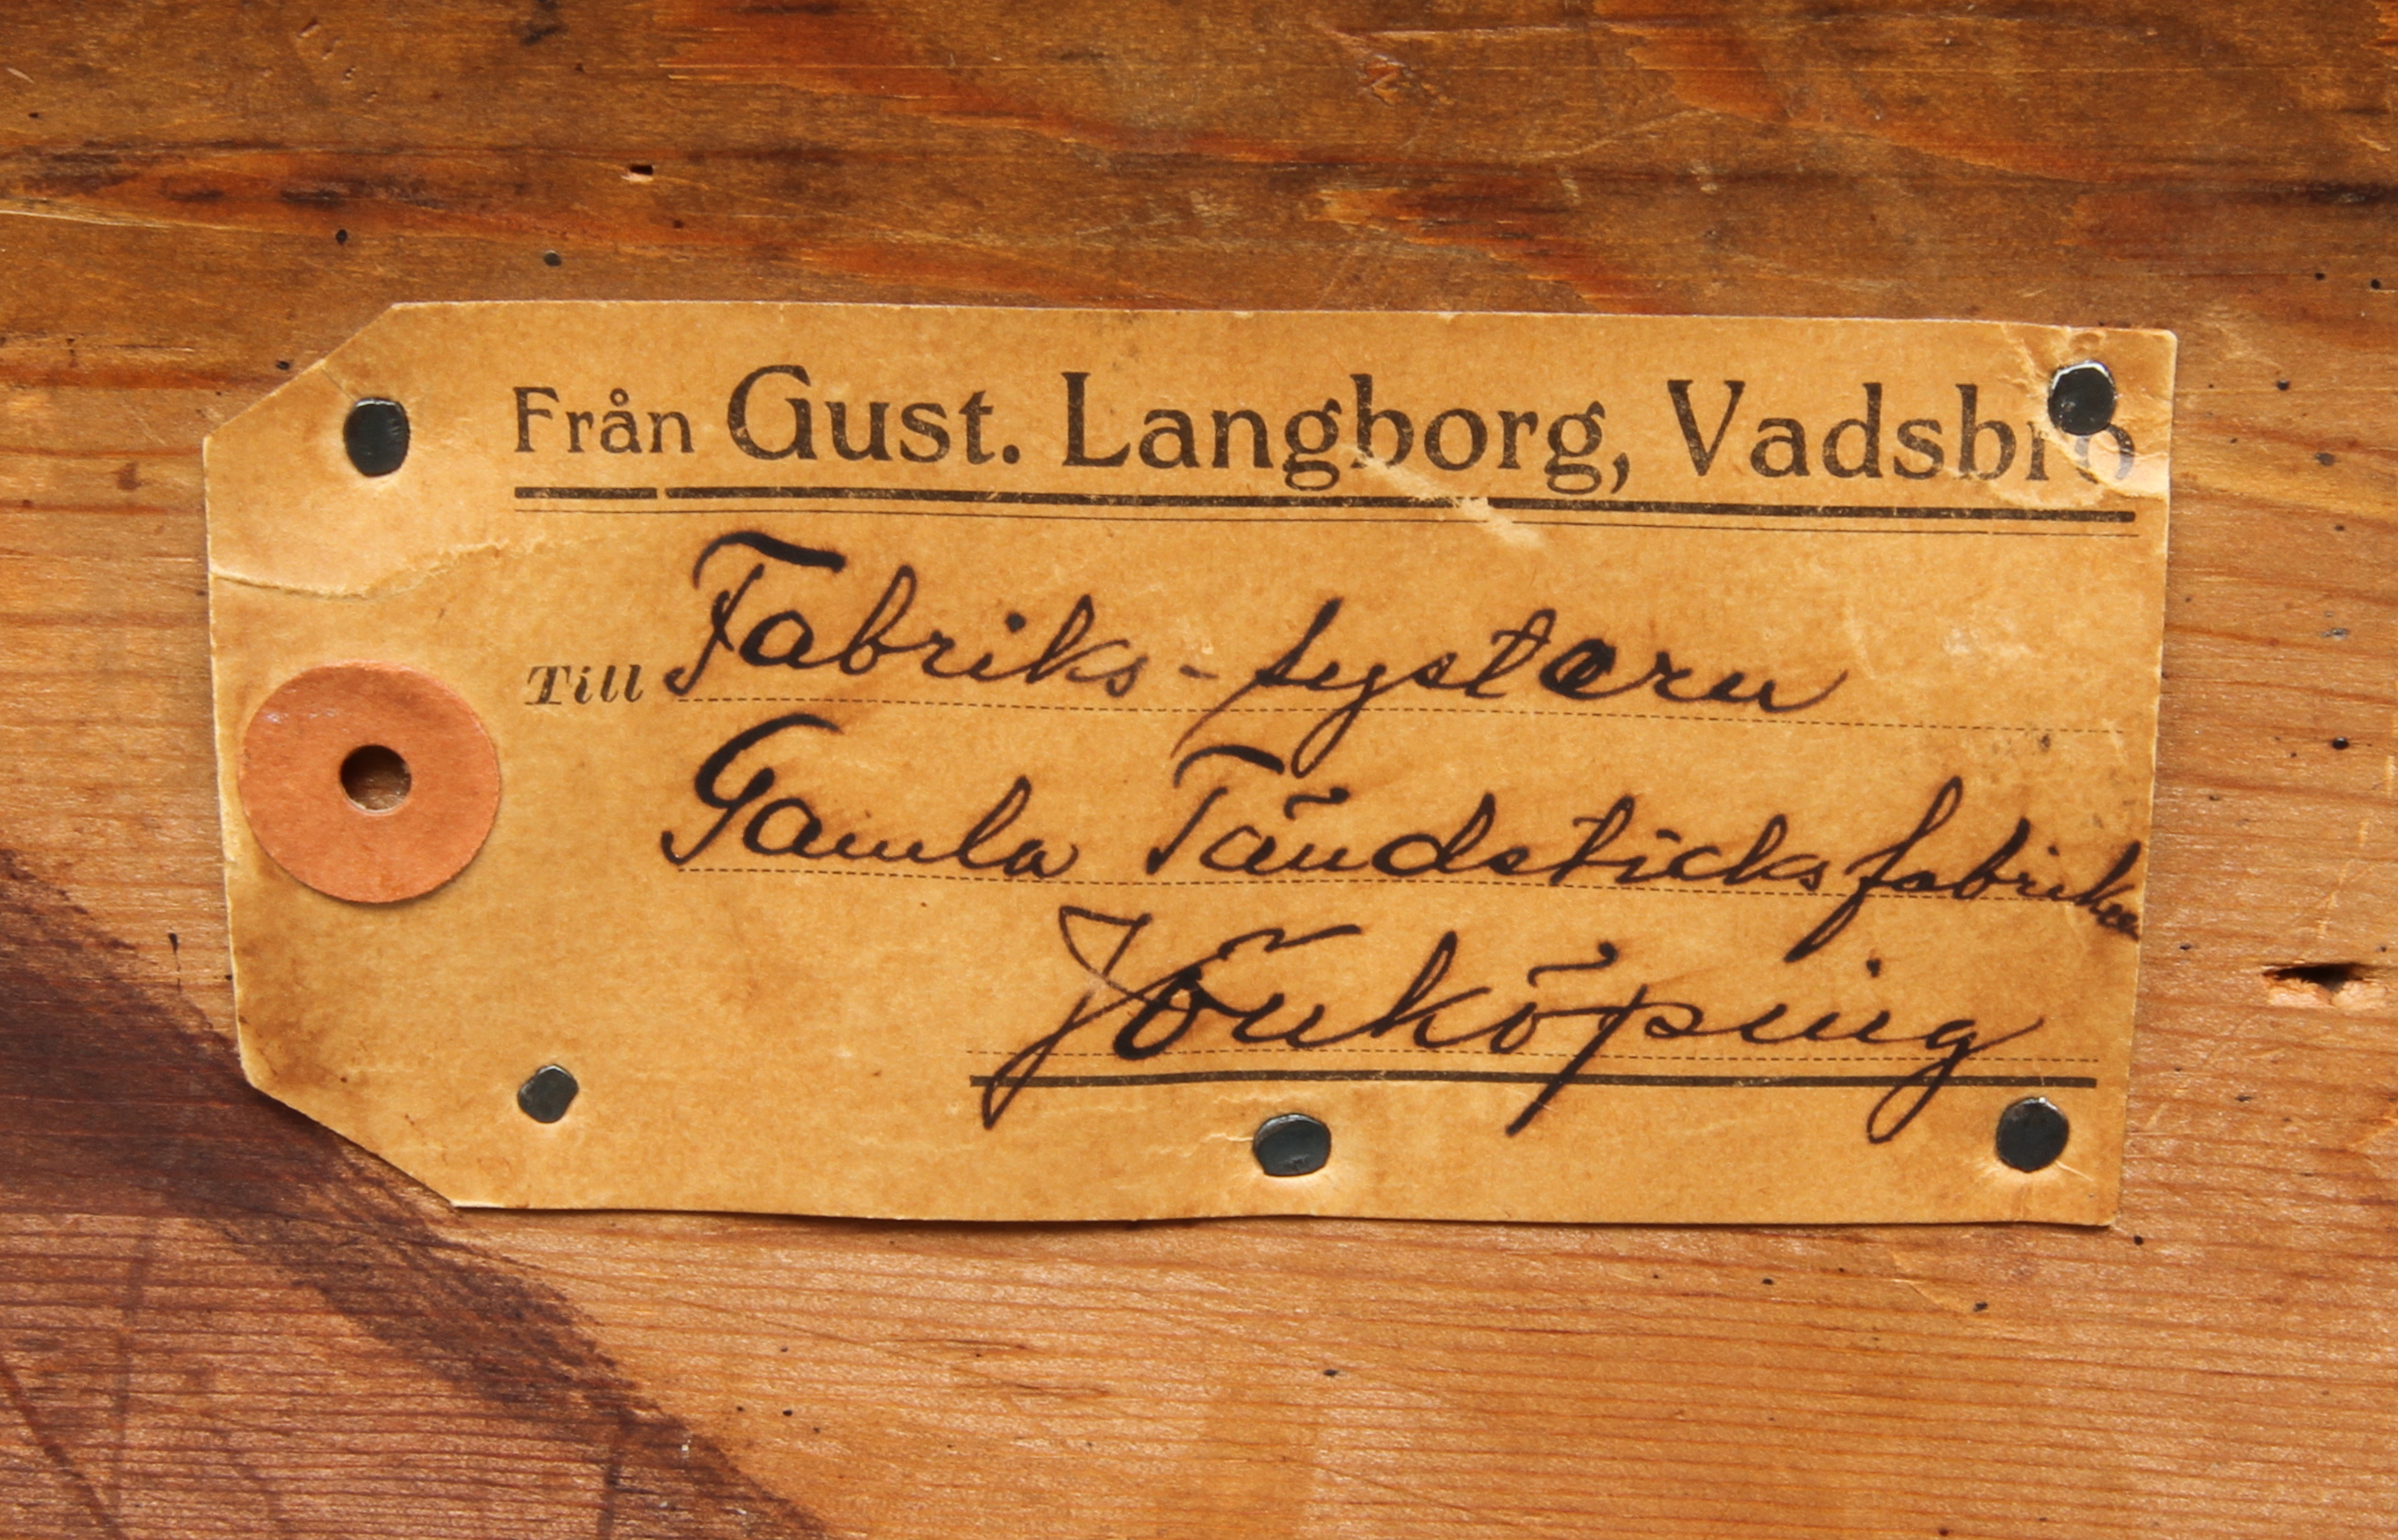 Från Gust. Langborg, Vadsbro
Till Fabriks-systern
Gamla Tändsticksfabriken
Jönköping